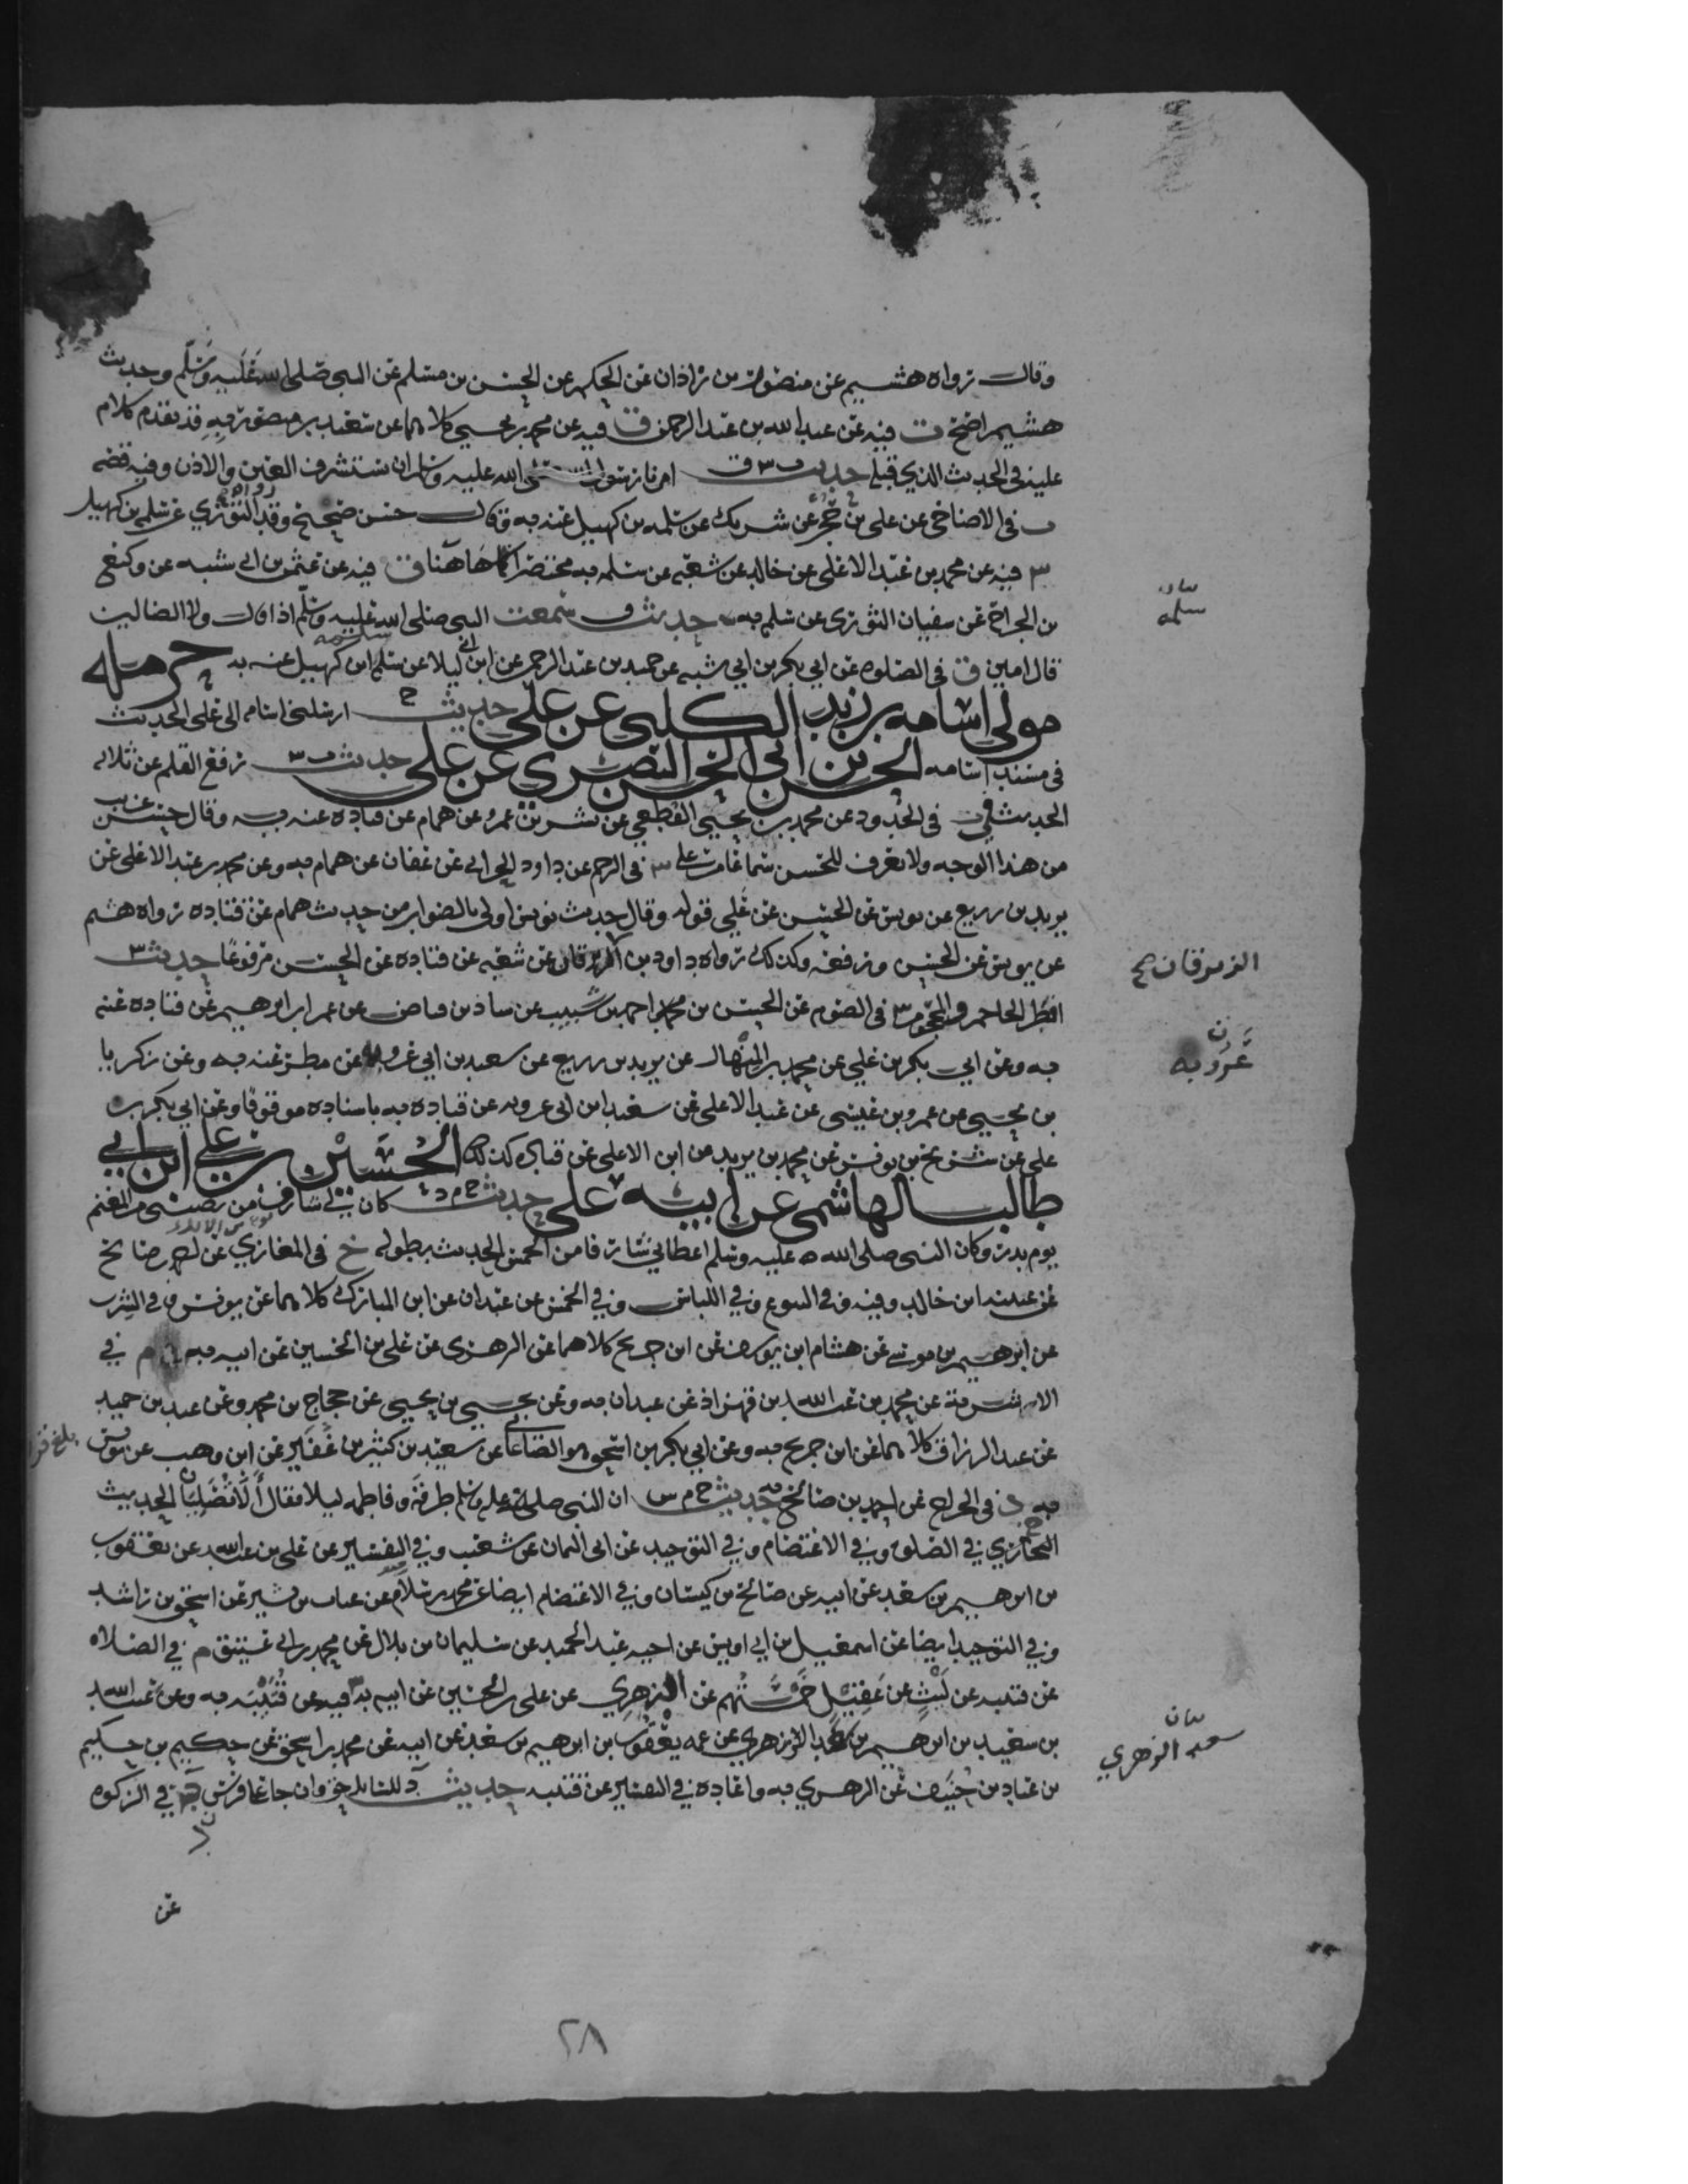 وقال رواه هشيم عن منصور بن زاذان عن الحكم عن الحسن بن مسلم عن النبي صلى الله عليه وسلم وحديث
هشيم اصح ت فيه عن عبد الله بن عبد الرحمن ق فيه عن محمد بن يحيى كلاهما عن سعيد بن منصور به قد تقدم كلام
علينه في الحديث الذي قبله حديث ت س ق امرنا رسول الله صلى الله عليه وسلم ان نستشرف العين والاذن وفيه قصه
ت في الاضاحي عن علي بن حجر عن شريك عن سلمه بن كهيل عنه به وقال حسن صحيح وقد رواه الثوري عن سلمه بن كهيل
س فيه عن محمد بن عبد الاعلى عن خالد عن شعبه عن سلمه به مختصرا كما هاهنا ق فيه عن عثمن بن ابي شيبه عن وكيع
بن الجراح عن سفيان الثوري عن سلمه به حديث ق سمعت النبي صلى الله عليه وسلم اذا قال ولا الضالين
قال امين ق في الصلوه عن ابي بكر بن ابي شيبه عن حميد بن عبد الرحمن عن ابن ابي ليلا عن سلمه ابن كهيل عنه به حرمله
مولى اسامه بن زيد الكلبي عن علي حديث خ ارسلني اسامه الى علي الحديث
في مسند اسامه الحسن بن ابي الحسن البصري عن علي حديث ت س رفع القلم عن ثلاثه
الحديث ت في الحدود عن محمد بن يحيى القطعي عن بشر بن عمر عن همام عن قتاده عنه به وقال حسن غريب
من هذا الوجه ولا نعرف للحسن سماعا من علي س في الرجم عن ابي داود الحراني عن عفان عن همام به وعن محمد بن عبد الاعلى عن
يزيد بن زريع عن يونس عن الحسن عن علي قوله وقال حديث يونس اولى بالصواب من حديث همام عن قتاده رواه هشيم
عن يونس عن الحسن ورفعه وكذلك رواه داود بن الزبرقان عن شعبه عن قتاده عن الحسن مرفوعا حديث س
افطر الحاجم والمحجوم س في الصوم عن الحسن بن محمد احمد بن شبيب عن شاذ بن فياض عن عمر ابن ابرهيم عن قتاده عنه
به وعن ابي بكر بن علي عن محمد بن المنهال عن يزيد بن زريع عن سعيد بن ابي عروبه عن مطر عنه به وعن زكريا
بن يحيى عن عمرو بن عيسى عن عبد الاعلى عن سعيد ابن ابي عروبه عن قتاده به باسناده موقوفا وعن ابي بكر بن
علي عن سريج بن يونس عن محمد بن يزيد عن ابي الاعلى عن قتاده كذلك الحسين بن علي ابن ابي
طالب الهاشمي عن ابيه علي حديث خ م د كان لي شارف من نصيبي من المغنم
يوم بدر وكان النبي صلى الله عليه وسلم اعطاني شارفا من الخمس الحديث بطوله خ في المغازي عن احمد بن صالح
عن عنبسه ابن خالد وفيه وفي البيوع وفي اللباس وفي الخمس عن عبدان عن ابن المبارك كلاهما عن يونس وفي الشرب
عن ابرهيم بن موسى عن هشام ابن يوسف عن ابن جريج كلاهما عن الزهري عن علي بن الحسين عن ابيه به م في
الاشربة عن محمد بن عبد الله بن قهزاذ عن عبدان به وعن يحيى بن يحيى عن حجاج بن محمد وعن عبد بن حميد
عن عبد الرزاق كلاهما عن ابن جريج به وعن ابي بكر بن اسحق هو الصاغاني عن سعيد بن كثير بن عفير عن ابن وهب عن يونس
به د في الخراج عن احمد بن صالح به حديث خ م س ان النبي صلى الله عليه وسلم طرقه وفاطمه ليلا فقال ألا تصليان الحديث
البخاري في الصلوه وفي الاعتصام وفي التوحيد عن ابي اليمان عن شعيب وفي التفسير عن علي بن عبد الله عن يعقوب
بن ابرهيم بن سعد عن ابيه عن صالح بن كيسان وفي الاعتصام ايضا عن محمد بن سلام عن عتاب بن بشير عن اسحق بن راشد
وفي التوحيد ايضا عن اسمعيل بن ابي اويس عن اخيه عبد الحميد عن سليمان بن بلال عن محمد بن ابي عتيق م في الصلاه
عن قتيبه عن ليث عن عقيل خمستهم عن الزهري عن علي بن الحسين عن ابيه به س فيه عن قتيبه به وعن عبيد الله
بن سعيد بن ابرهيم بن سعد الزهري عن عمه يعقوب بن ابرهيم بن سعد عن ابيه عن محمد بن اسحق عن حكيم بن حكيم
بن عباد بن حنيف عن الزهري به واعاده في التفسير عن قتيبه حديث د للسايل حق وان جا على فرس د في الزكوه
عن
بيان
سلمه
الزبرقان صح
ن
عروبه
بيان
سعد الزهري
٢٨